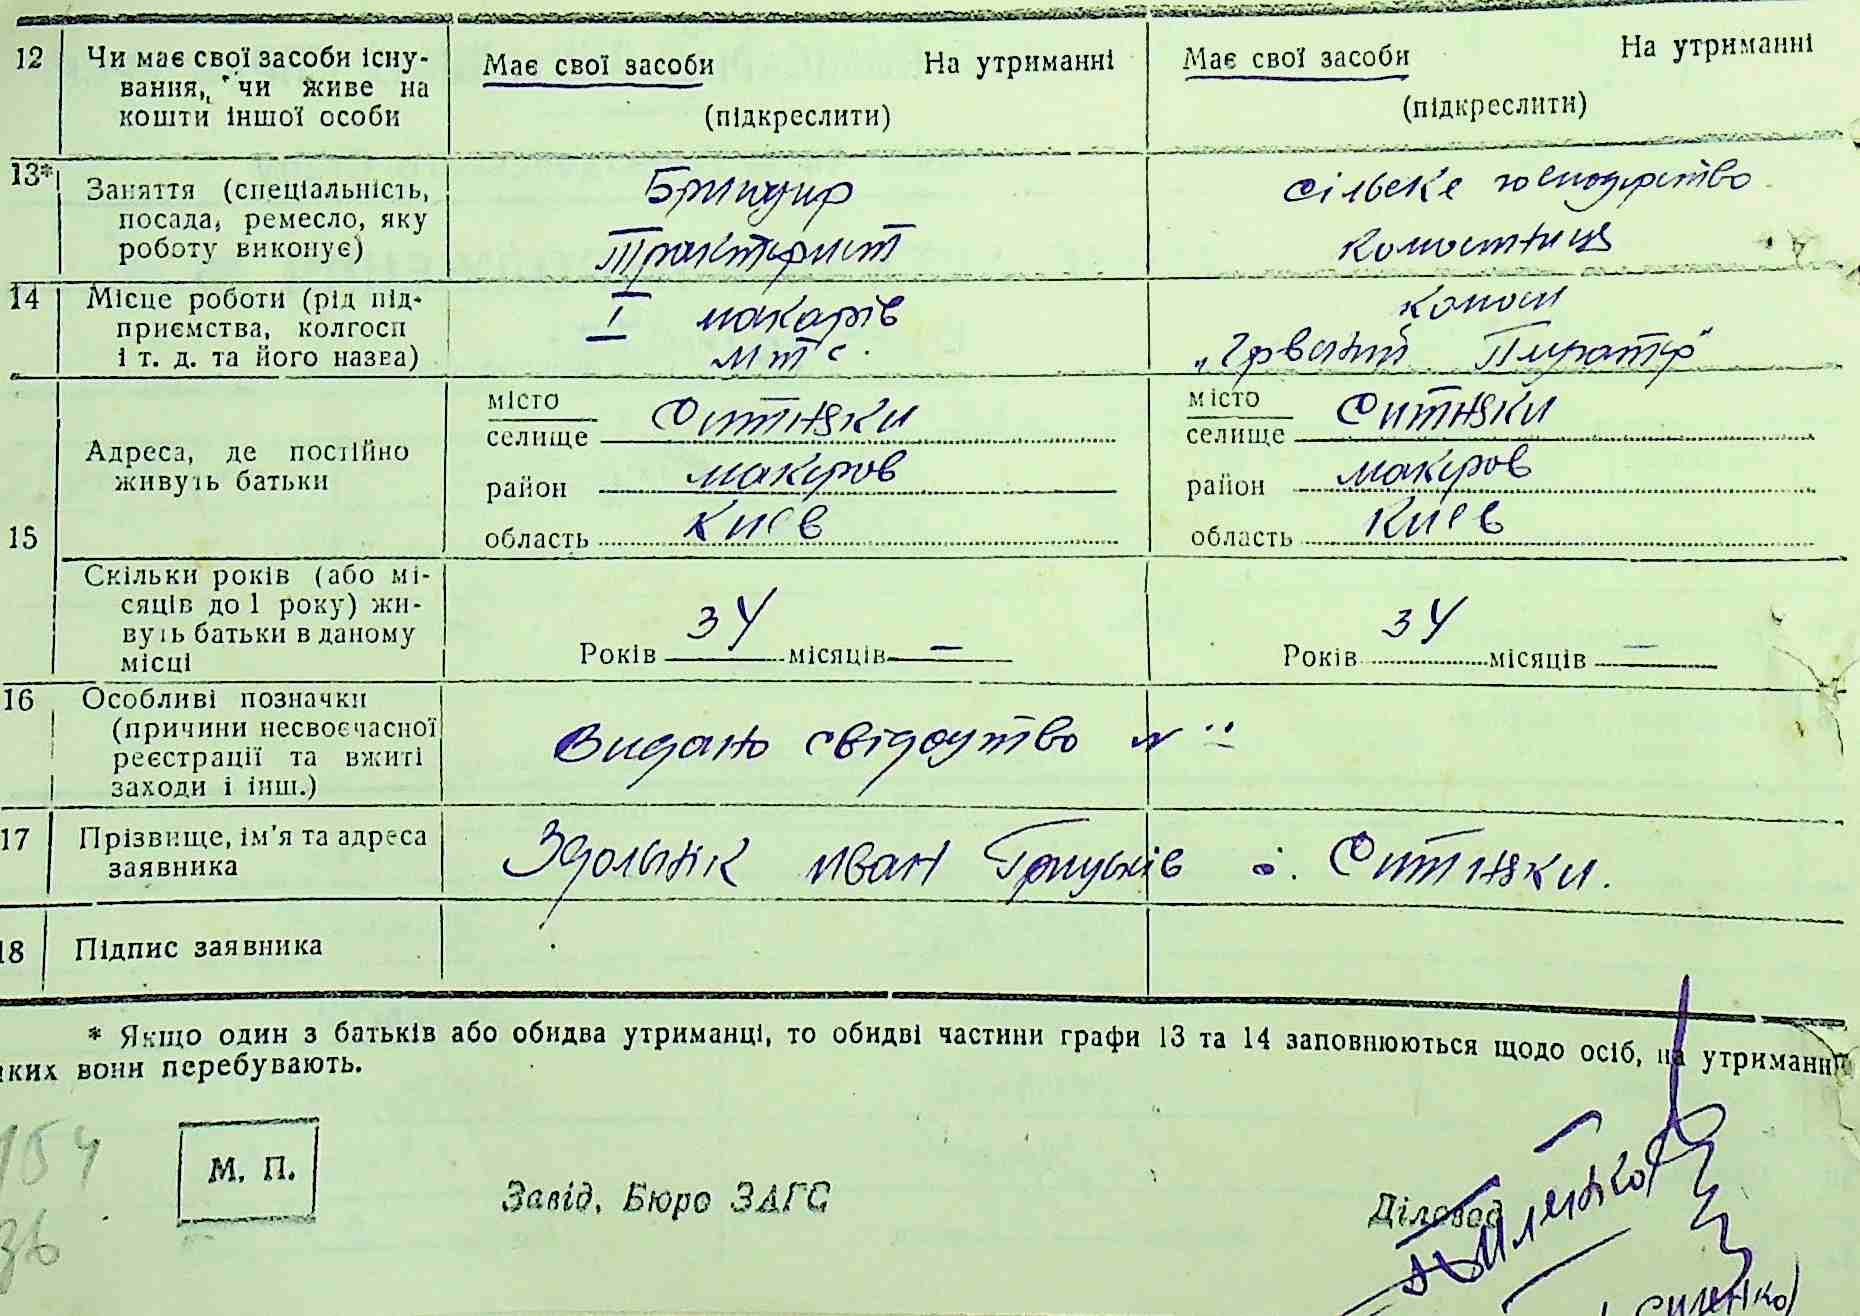 12 Чи має свої засоби існу- Має свої засоби На утриманні Має свої засоби На утриманні
вання, чи живе на (підкреслити) (підкреслити)
кошти іншої особи
13* Заняття (спеціальність, Бригадир сільске господарство
посада, ремесло, яку Тракторист
роботу виконує)
14 Місце роботи (рід під- І макарів
приємства, колгосп мтс
і т. д. та його назва)
15 Адреса, де постійно живуть батьки
місто селище Ситняки місто селище Ситняки
район макаров район макаров
область Киев область Киев
Скільки років (або мі-
сяців до 1 року) жи-
вуть батьки в даному Років 34 місяців — Років 34 місяців —
місці
16 Особливі позначки
(причини несвоєчасної Видано свідоцтво №
реєстрації та вжиті
заходи і інш.)
17 Прізвище, ім'я та адреса Здольник Иван с. Ситняки.
заявника
18 Підпис заявника
* Якщо один з батьків або обидва утриманці, то обидві частини графи 13 та 14 заповнюються щодо осіб, на утриманні
яких вони перебувають.
М. П.
Завід. Бюро ЗАГС Діловод